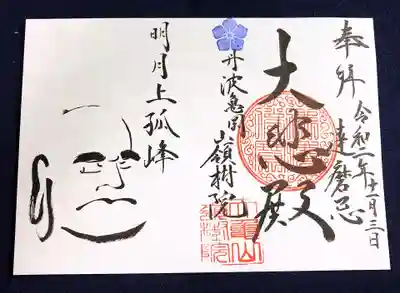 奉拝
令和二年十一月三日
達磨忌
大悲殿
丹波亀岡
嶺樹院
明月上孤峰